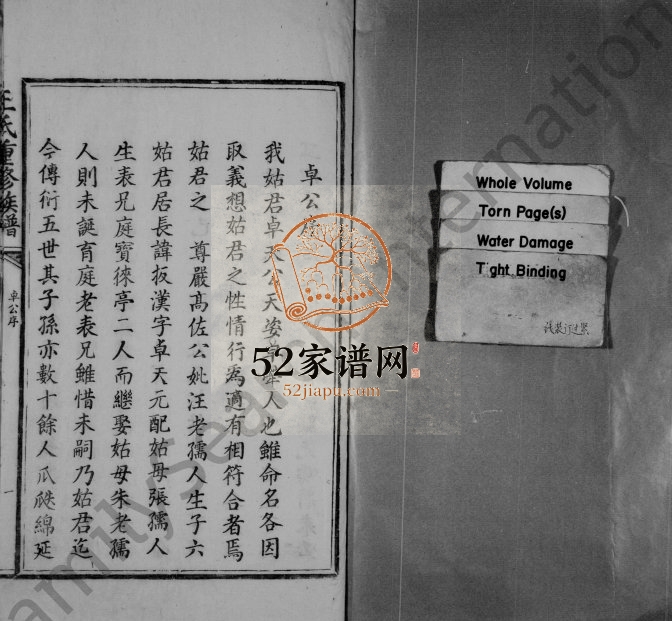 卓公序
我姑君卓天公天姿卓人也雖命名各因
取義想姑君之性情行為適有相符合者焉
姑君之 尊嚴高佐公妣汪老孺人生子六
姑君居長諱扳漢字卓天元配姑母張孺人
生表兄庭寶徠亭二人而繼娶姑母朱老孺
人則未誕育庭老表兄雖惜未嗣乃姑君迄
今傳衍五世其子孫亦數十餘人瓜瓞綿延
王氏重修族譜
卓公序
一
Whole Volume
Torn Page(s)
Water Damage
Tight Binding
52家谱网
52jiapu.com
FamilySearch International